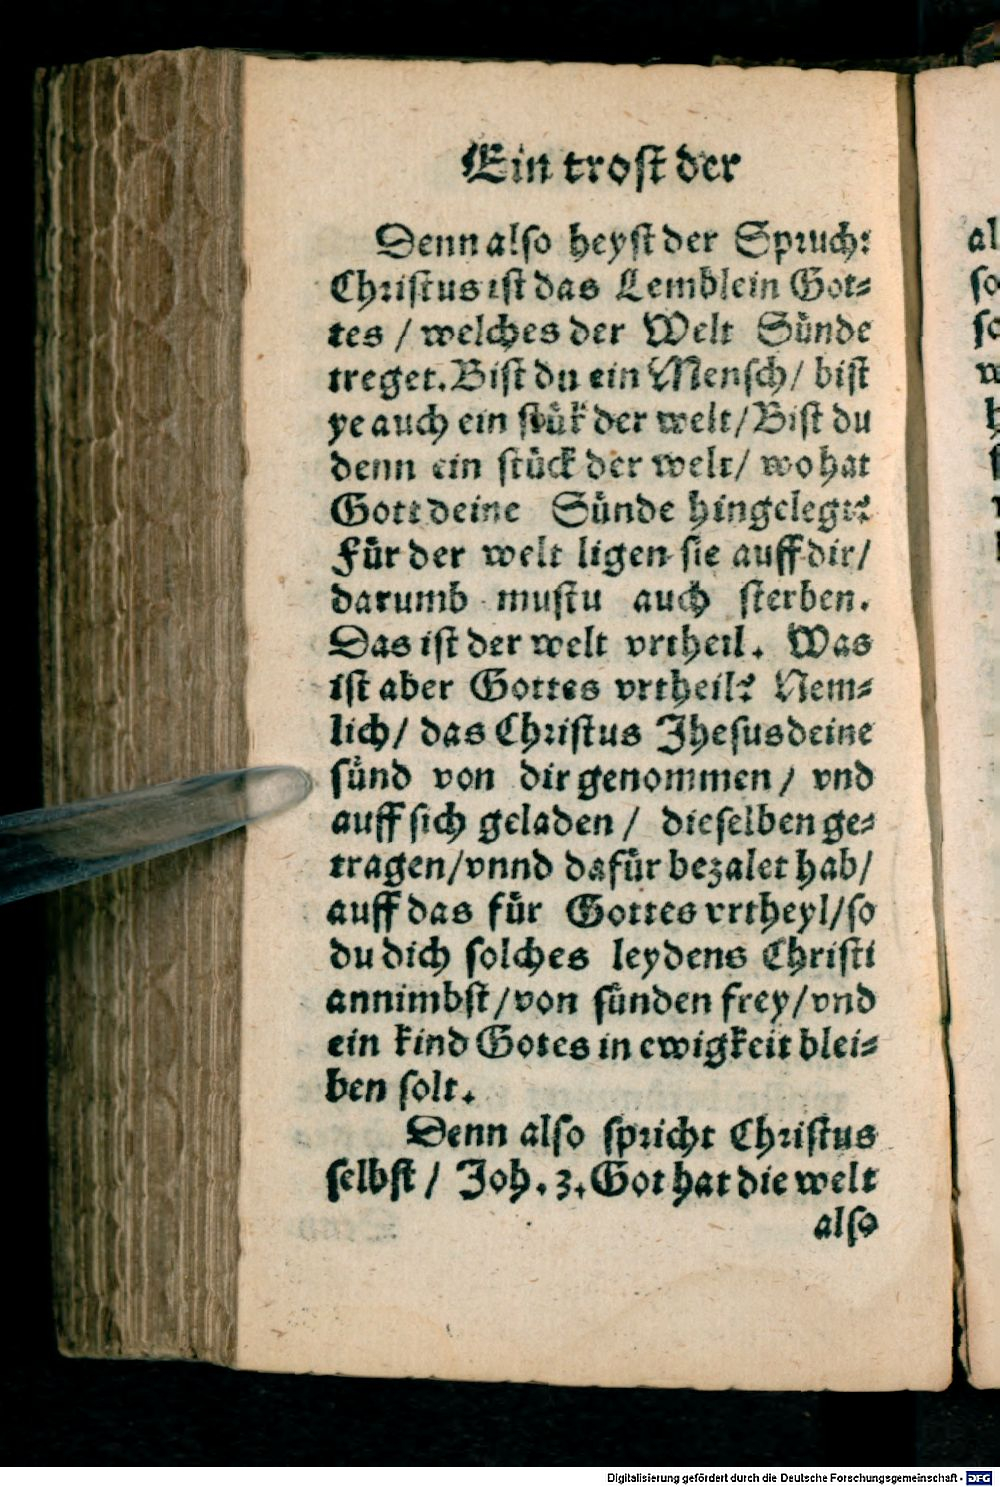 Ein trost der
Denn also heyst der Spruch:
Christus ist das Lemblein Got⸗
tes / welches der Welt Sünde
treget. Bist du ein Mensch / bist
ye auch ein stük der welt / Bist du
denn ein stück der welt / wo hat
Gott deine Sünde hingelegt?
Für der welt ligen sie auff dir /
darumb mustu auch sterben.
Das ist der welt vrtheil. Was
ist aber Gottes vrtheil? Nem⸗
lich / das Christus Jhesus deine
sünd von dir genommen / vnd
auff sich geladen / dieselben ge⸗
tragen / vnnd dafür bezalet hab /
auff das für Gottes vrtheyl / so
du dich solches leydens Christi
annimbst / von sünden frey / vnd
ein kind Gotes in ewigkeit blei⸗
ben solt.
Denn also spricht Christus
selbst / Joh. 3. Got hat die welt
also
Digitalisierung gefördert durch die Deutsche Forschungsgemeinschaft - DFG